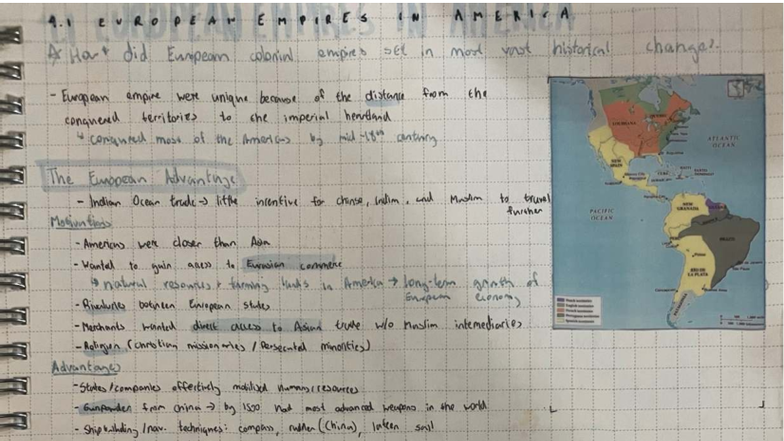 4.1 EUROPEAN EMPIRES IN AMERICA
did European colonial empires set in most vast historical change?
- European empire were unique because of the distance from the
conquered territories to the imperial heartland
↳ conquered most of the Americas by mid-18th century
The European Advantage
- Indian Ocean trade → little incentive for and Muslim to travel
further
Motivations
- Americas were closer than Asia
- Wanted to gain access to Eurasian commerce
↳ natural resources + farming lands in America → long-term growth of
European economy
- Rivalries between European states
- Merchants wanted direct access to Asian trade w/o Muslim intermediaries
- Religion (Christian missionaries / Persecuted minorities)
Advantages
- States/companies effectively mobilized human/resources
- Gunpowder from China → by 1500 had most advanced weapons in the world
- Shipbuilding/nav. techniques: compass, rudder (China), lateen sail
ATLANTIC
OCEAN
PACIFIC
OCEAN
LOUISIANA
NEW
SPAIN
NEW
GRANADA
BRAZIL
RÍO DE
LA PLATA